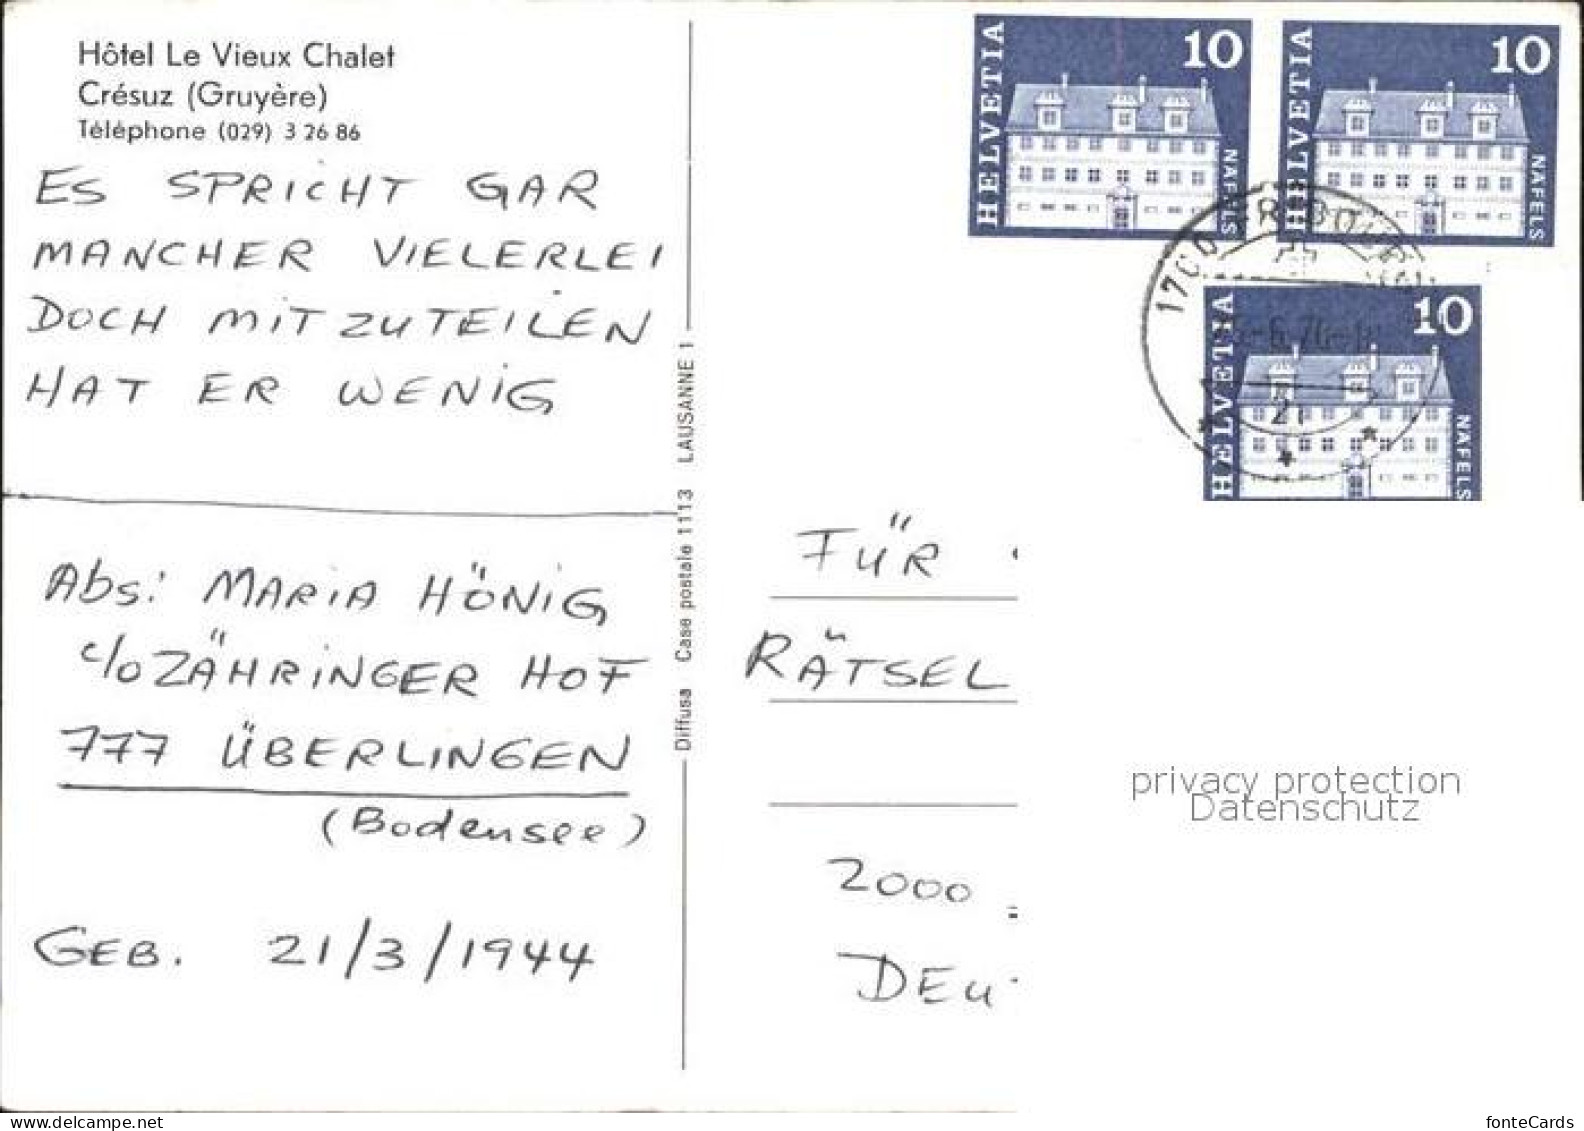 Hôtel Le Vieux Chalet
Crésuz (Gruyère)
Téléphone (029) 3 26 86
ES SPRICHT GAR
MANCHER VIELERLEI
DOCH MITZUTEILEN
HAT ER WENIG
Abs: MARIA HÖNIG
c/o ZÄHRINGER HOF
777 ÜBERLINGEN
(Bodensee)
GEB. 21/3/1944
Diffusa Case postale 1113 LAUSANNE 1
HELVETIA 10 NÄFELS
HELVETIA 10 NÄFELS
HELVETIA 10 NÄFELS
1700 FRIBOURG
21
FÜR
RÄTSEL
2000
DEU
privacy protection
Datenschutz
fonteCards